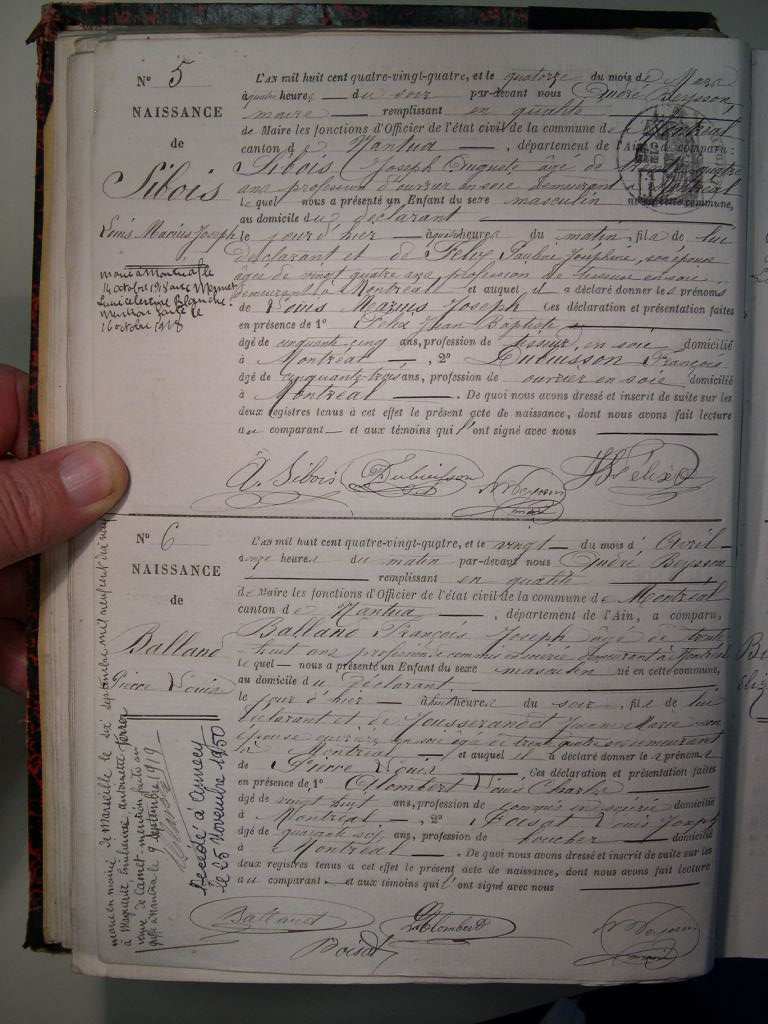 N° 5
NAISSANCE
de
Sibois
Louis Marius Joseph
marié à Montréal le
14 octobre 1918 avec
Blanche.
Mention faite le
16 octobre 1918
L'AN mil huit cent quatre-vingt-quatre, et le quatorze du mois de Mars
à quatre heures du soir par-devant nous André Beysson,
maire remplissant en qualité
de Maire les fonctions d'Officier de l'état civil de la commune de Montréal
canton de Nantua, département de l'Ain, a comparu:
Sibois Joseph Auguste âgé de quatre
ans profession d'ouvrier en soie demeurant Montréal
lequel nous a présenté un Enfant du sexe masculin né en cette commune,
au domicile du déclarant
le jour d'hier à heures du matin, fils de lui
déclarant et de Félix Pauline Joséphine, son épouse
âgée de vingt quatre ans, profession de tisseuse en soie
demeurant à Montréal et auquel il a déclaré donner les prénoms
de Louis Marius Joseph Ces déclaration et présentation faites
en présence de 1° Félix Jean Baptiste
âgé de cinquante cinq ans, profession de tisseur en soie domicilié
à Montréal, 2° Dubuisson François
âgé de cinquante-trois ans, profession de ouvrier en soie domicilié
à Montréal. De quoi nous avons dressé et inscrit de suite sur les
deux registres tenus à cet effet le présent acte de naissance, dont nous avons fait lecture
au comparant et aux témoins qui l'ont signé avec nous
A. Sibois Dubuisson A Beysson Félix
maire
N° 6
NAISSANCE
de
Balland
Pierre Louis
marié en mairie de Marseille le six septembre mil neuf cent dix neuf
à Marguerite Emilienne Antoinette Ferrer
mention faite au
greffe à Nantua le 9 septembre 1919
Décédé à Annecy
le 25 Novembre 1950
L'AN mil huit cent quatre-vingt-quatre, et le vingt du mois d'Avril
onze heures du matin par-devant nous André Beysson
remplissant en qualité
de Maire les fonctions d'Officier de l'état civil de la commune de Montréal
canton de Nantua, département de l'Ain, a comparu,
Balland François Joseph âgé de trente
-huit ans profession de commis en soierie demeurant à Montréal
lequel nous a présenté un Enfant du sexe masculin né en cette commune,
au domicile du déclarant
le jour d'hier à huit heures du soir, fils de lui
déclarant et de Jousserandot Jeanne Marie son
épouse ouvrière en soie âgée de trente quatre ans demeurant
à Montréal et auquel il a déclaré donner les prénoms
de Pierre Louis. Ces déclaration et présentation faites
en présence de 1° Clombert Louis Charles
âgé de vingt huit ans, profession de commis en soierie domicilié
à Montréal, 2° Boisat Louis Joseph
âgé de quarante six ans, profession de boucher domicilié
à Montréal. De quoi nous avons dressé et inscrit de suite sur les
deux registres tenus à cet effet le présent acte de naissance, dont nous avons fait lecture
au comparant et aux témoins qui l'ont signé avec nous
Balland Clombert A Beysson
Boisat maire